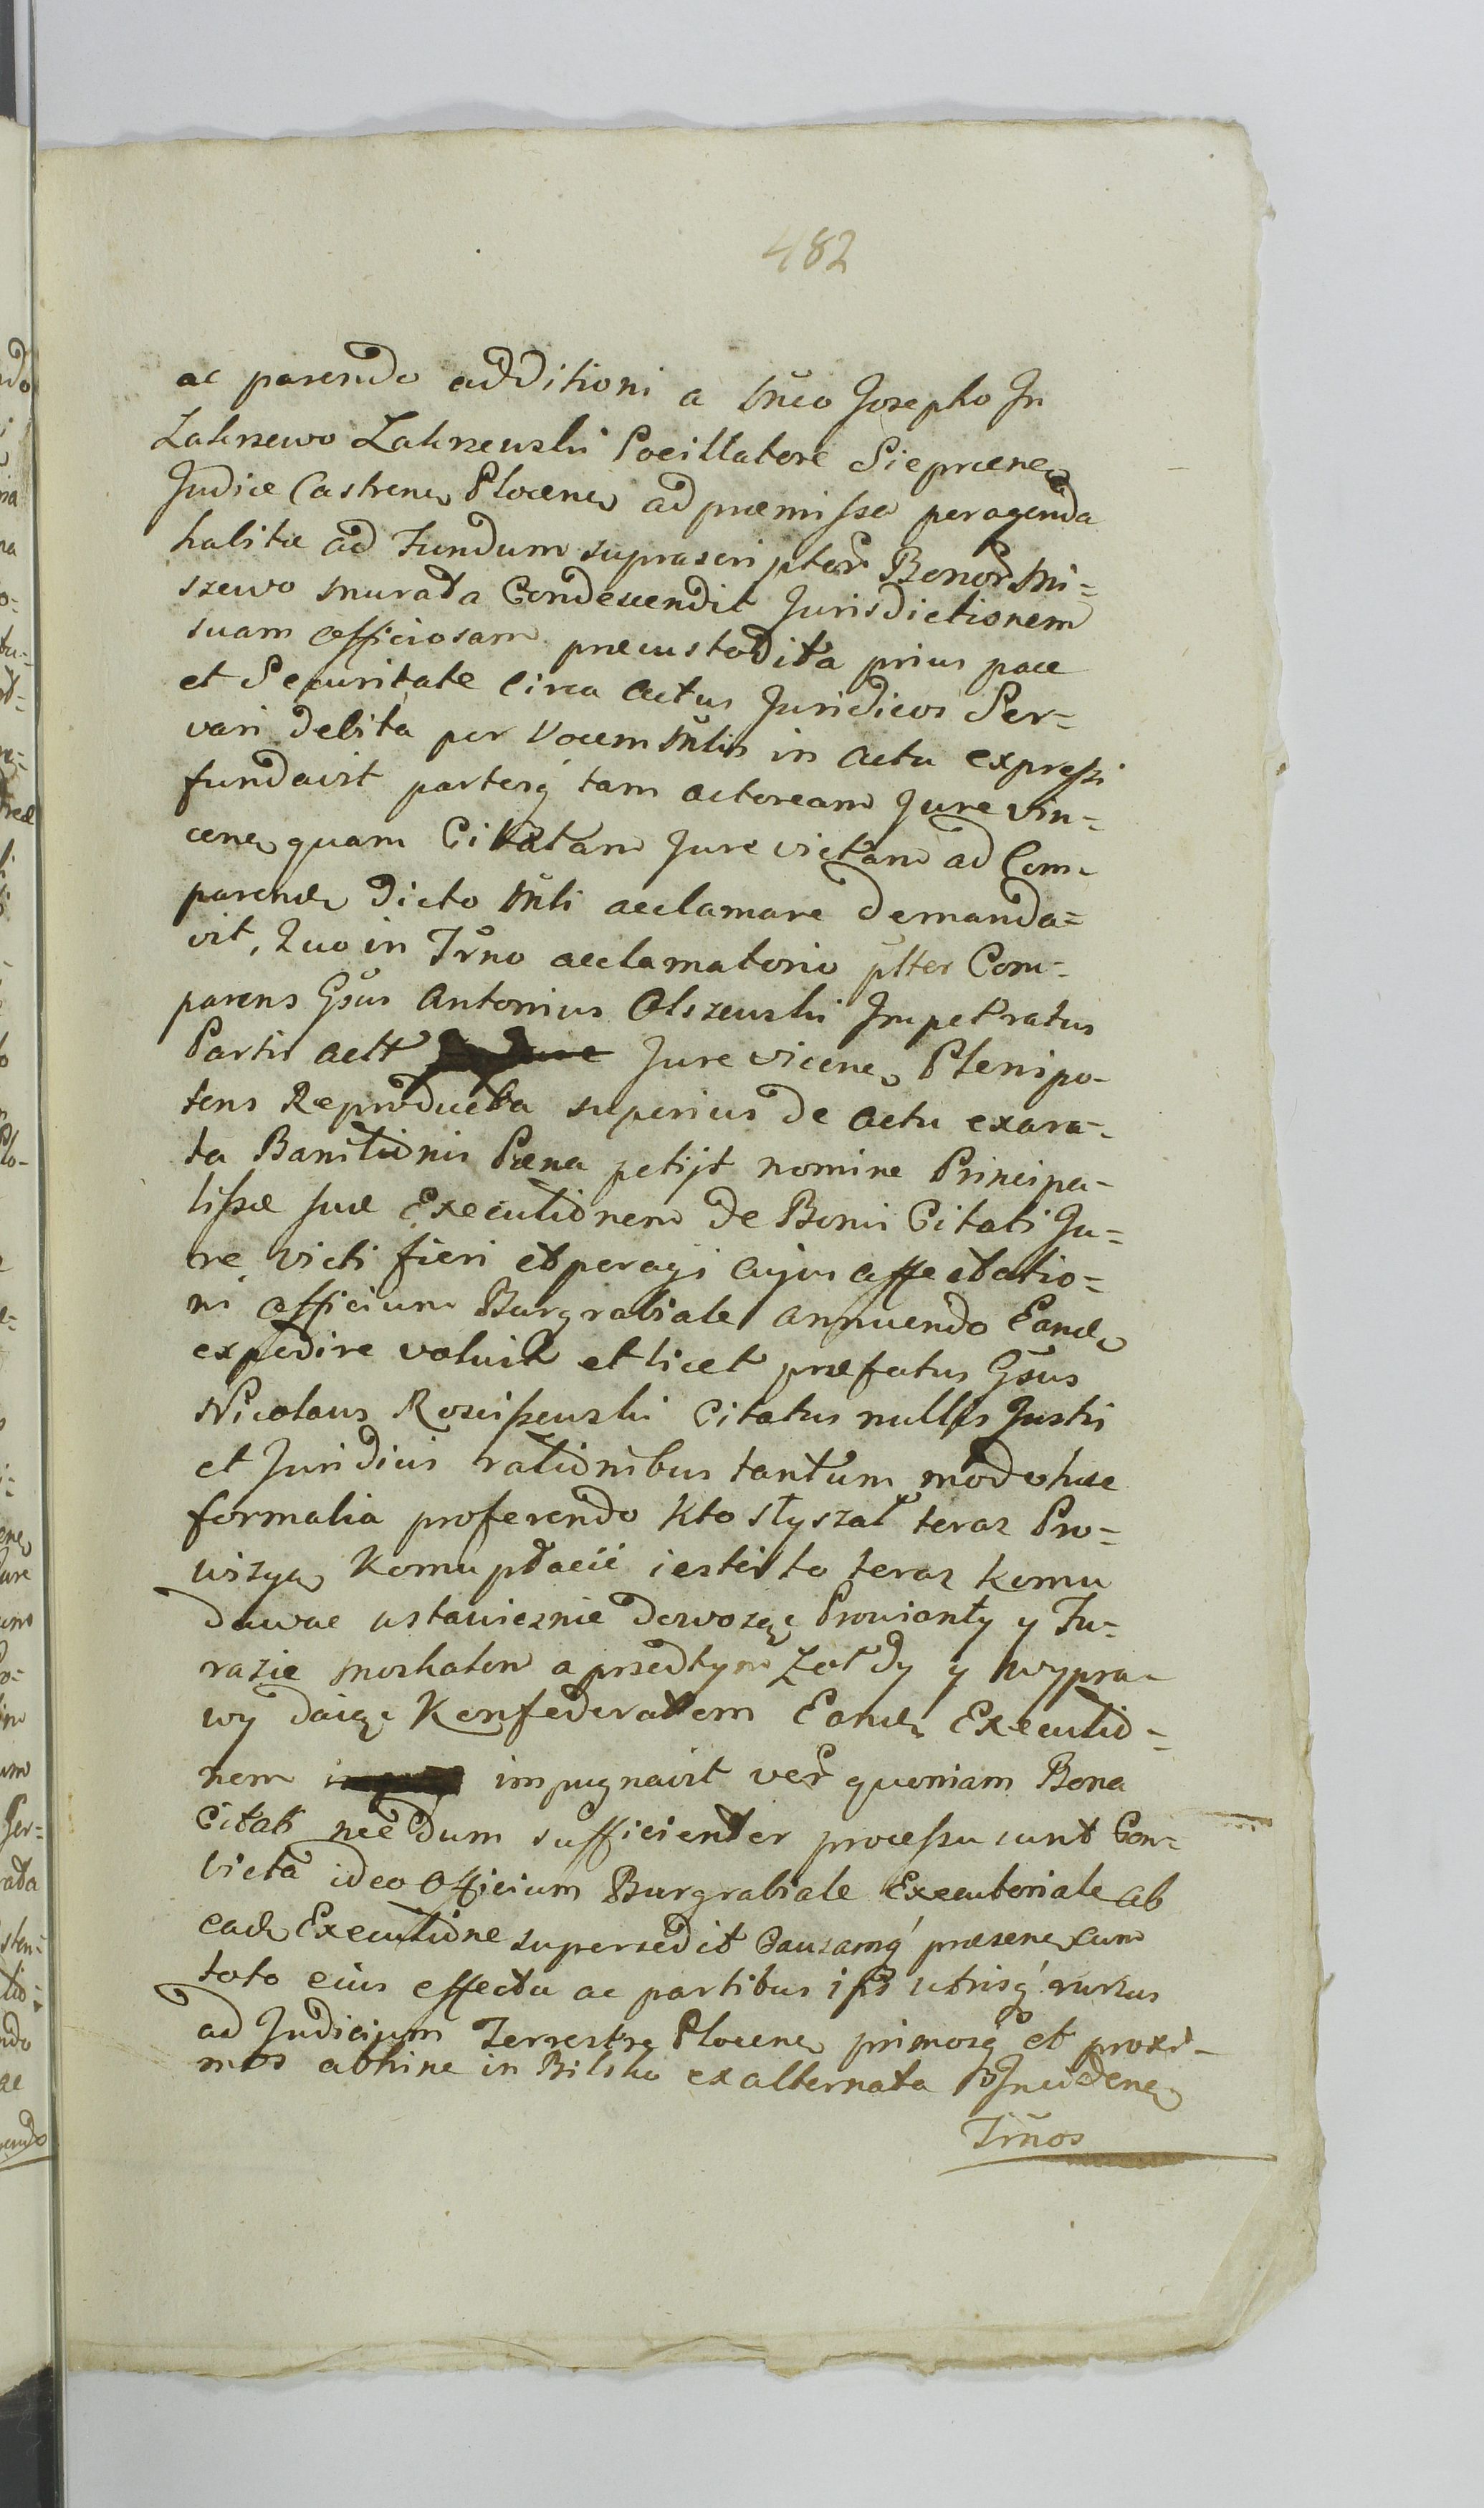 482
ac parendo additioni a Mñco Josepho In
Zakrzewo Zakrzewski Pocillatore Sieprcenen
Judice Castrenen Plocenen ad præmissa peragenda
habitæ ad Fundum suprascriptor Bonor Mi=
szewo Murata Condescendit Jurisdictionem
suam officiosam præcustodita prius pace
et Securitate circa actus Juridicos Ser=
vari debita per Vocem Mtlis in actu expressi
fundavit partesq́ tam actoream Jure vin=
cenen quam Citatam Jure victam ad Com=
parend dicto Mtli acclamare demanda=
vit, Quo in Trño acclamatorio pltter Com=
parens Gsus Antonius Olszewski Impetratus
Partis actt Jure vicenen Plenipo-
tens Reproducta superius de actu exara-
ta Banitionis Pœna petijt nomine Principa-
lissæ suæ Executionem de Bonis Citati Ju=
re victi fieri et peragi cujus affectatio=
ni officium Burgrabiale annuendo Eand
expedire voluit et licet præfatus Gsus
Nicolaus Rosciszewski Citatus nullis Justis
et Juridicis rationibus tantum modo hæc
formalia proferendo Kto słyszał teraz Pro=
wizyą Komu płacić iest to teraz komu
dawac ustawicznie dowożąc Prowianty y Fu=
razie Moskalom a przedtym Zołdy y Wypra=
wy daiąc Konfederatom Eand Executio=
nem impugnavit ver quoniam Bona
Citati necdum sufficienter processu sunt Con=
victa ideo Officium Burgrabiale Executoriale ab
ead Executione supersedit Causamq́ præsenen cum
toto eius effectu ac partibus ipsis utrisq́ rursus
ad Judicium Terrestre Plocenen primosq́ et proxi-
mos abhinc in Bilsko ex alternata Incidenen
Trños